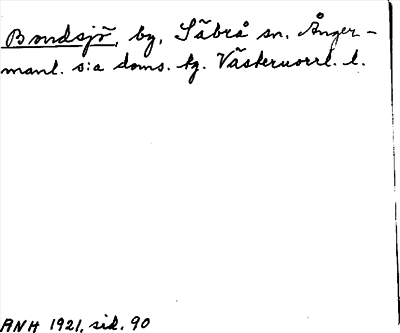 Bondsjö, by, Säbrå sn. Ånger-
manl. s:a doms. tg. Västernorrl. l.
ANH 1921, sid. 90